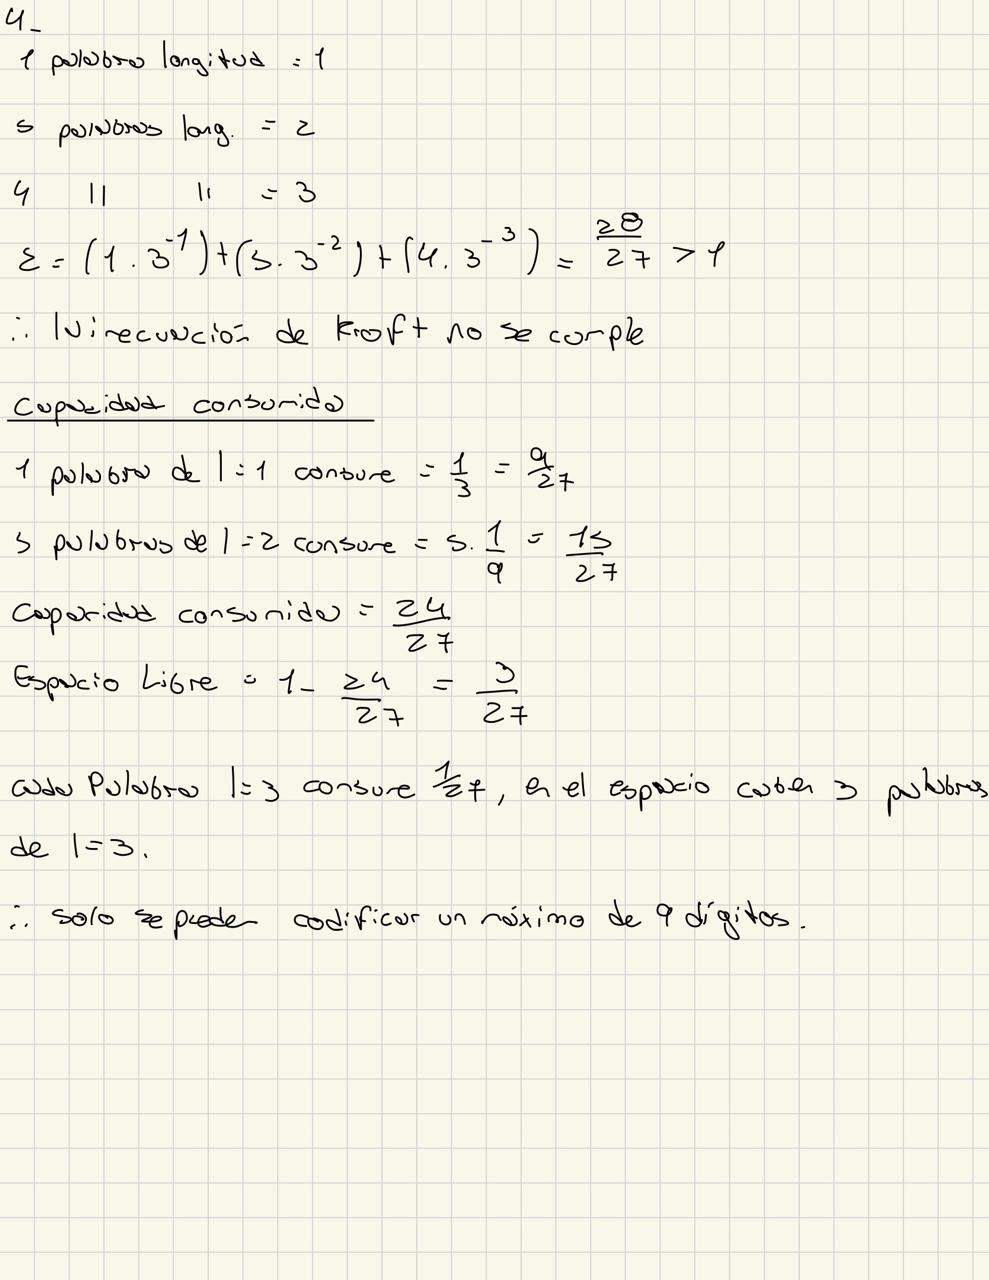 4_
1 palabra longitud = 1
5 palabras long. = 2
4 || || = 3
Σ = (1 · 3⁻¹) + (5 · 3⁻²) + (4 · 3⁻³) = 28/27 > 1
∴ la inecuación de Kraft no se cumple
Capacidad consumida
1 palabra de l = 1 consume = 1/3 = 9/27
5 palabras de l = 2 consume = 5 · 1/9 = 15/27
Capacidad consumida = 24/27
Espacio Libre = 1 - 24/27 = 3/27
cada Palabra l = 3 consume 1/27, en el espacio caben 3 palabras
de l = 3.
∴ solo se pueden codificar un máximo de 9 dígitos.